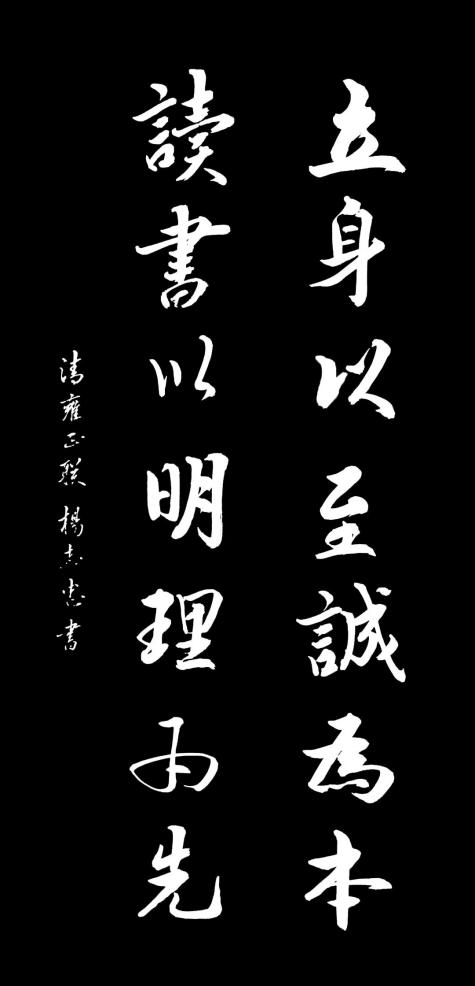 立身以至誠為本
讀書以明理為先
清雍正联 楊志忠書